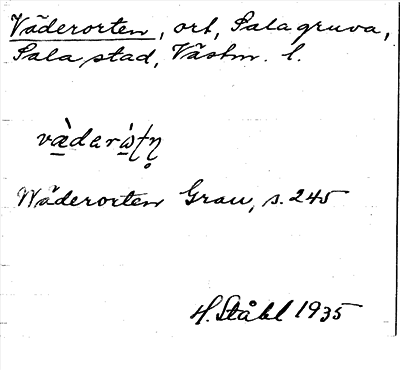 Väderorten, ort, Sala gruva,
Sala stad, Västm. l.
Wäderorten Grau, s. 245
H. Ståhl 1935